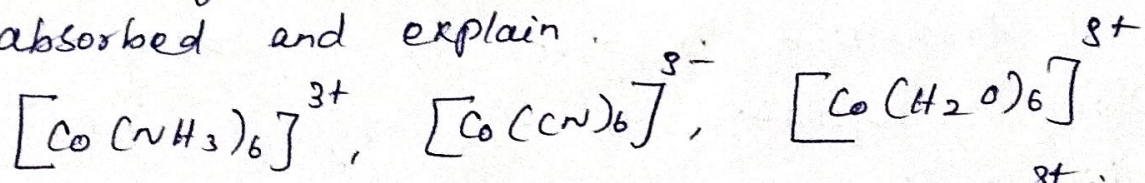 absorbed and explain.
[Co(NH3)6]3+, [Co(CN)6]3-, [Co(H2O)6]3+
3+